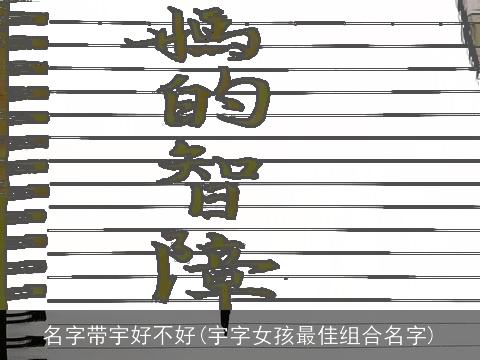 媽的智障
名字带宇好不好(宇字女孩最佳组合名字)